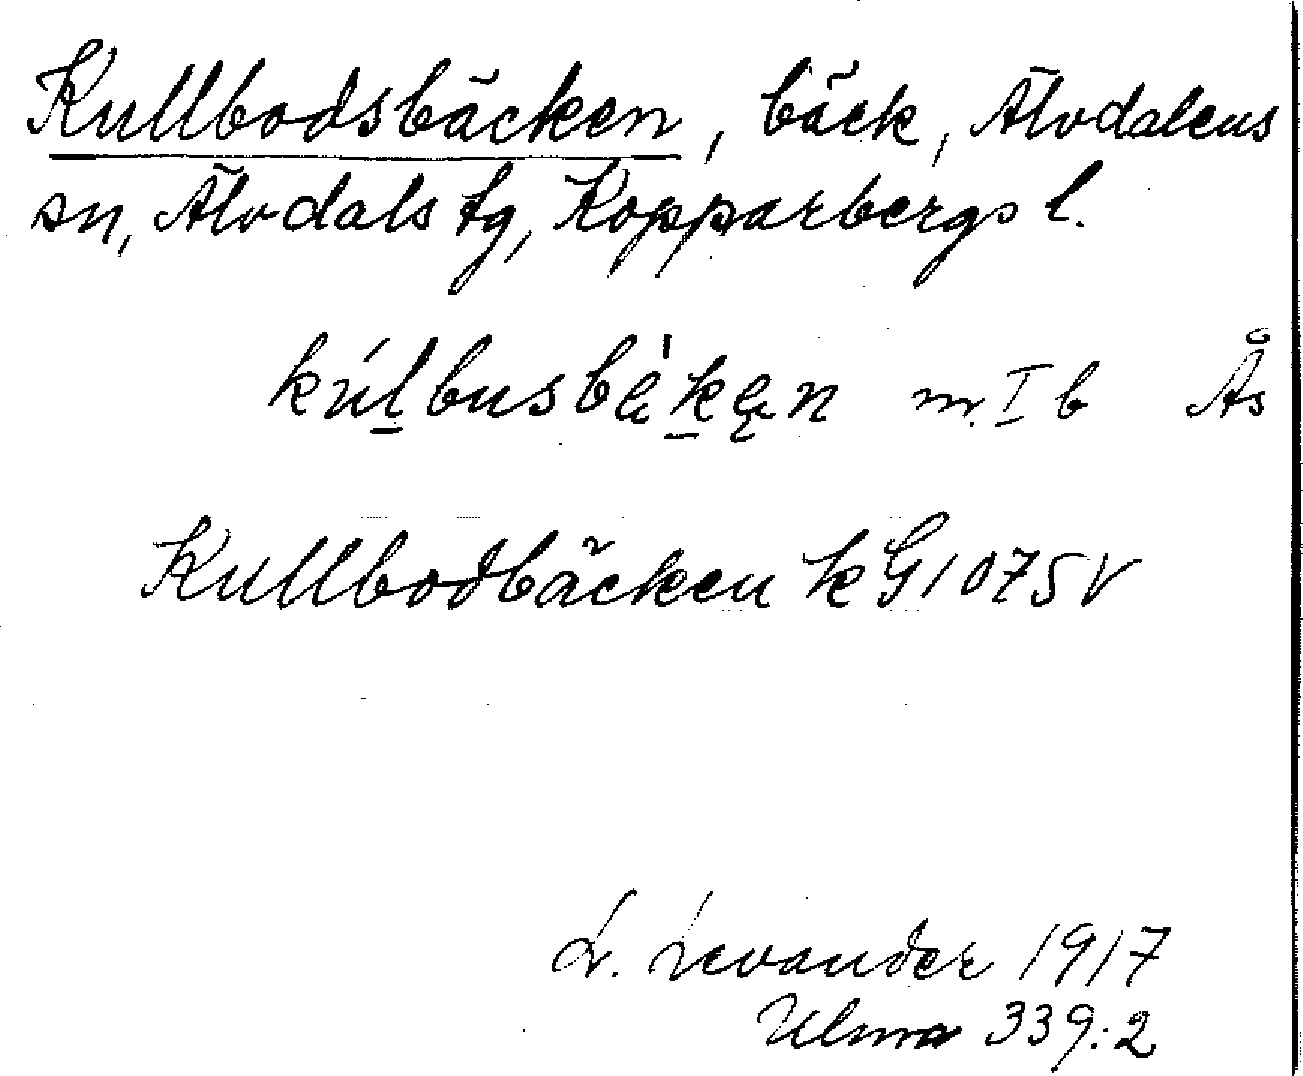 Kullbodsbäcken, bäck, Älvdalens
sn, Älvdals tg, Kopparbergs l.
kúl̲busbèk̲en m. I b Ås
Kullbodbäcken k G 1075 V
L. Levander 1917
Ulma 339:2